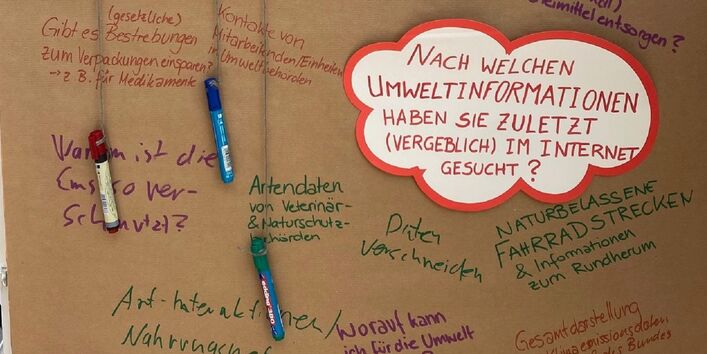 (gesetzliche)
Gibt es Bestrebungen
zum Verpackungen einsparen?
→ z B. für Medikamente
Kontakte von
Mitarbeitenden/Einheiten
in Umweltbehörden
entsorgen?
NACH WELCHEN
UMWELTINFORMATIONEN
HABEN SIE ZULETZT
(VERGEBLICH) IM INTERNET
GESUCHT?
Warum ist die
Ems so ver-
schmutzt?
Artendaten
von Veterinär-
& Naturschutz-
behörden
Daten
verschneiden
NATURBELASSENE
FAHRRADSTRECKEN
& Informationen
zum Rundherum
Art-Interaktionen/
worauf kann
ich für die Umwelt
Gesamtdarstellung
Klimaemissionsdaten
des Bundes